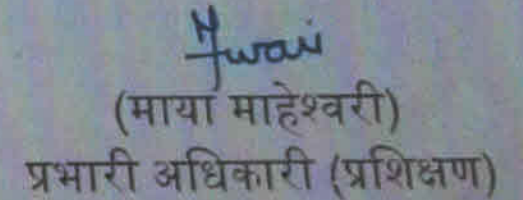 (माया माहेश्वरी)
प्रभारी अधिकारी (प्रशिक्षण)